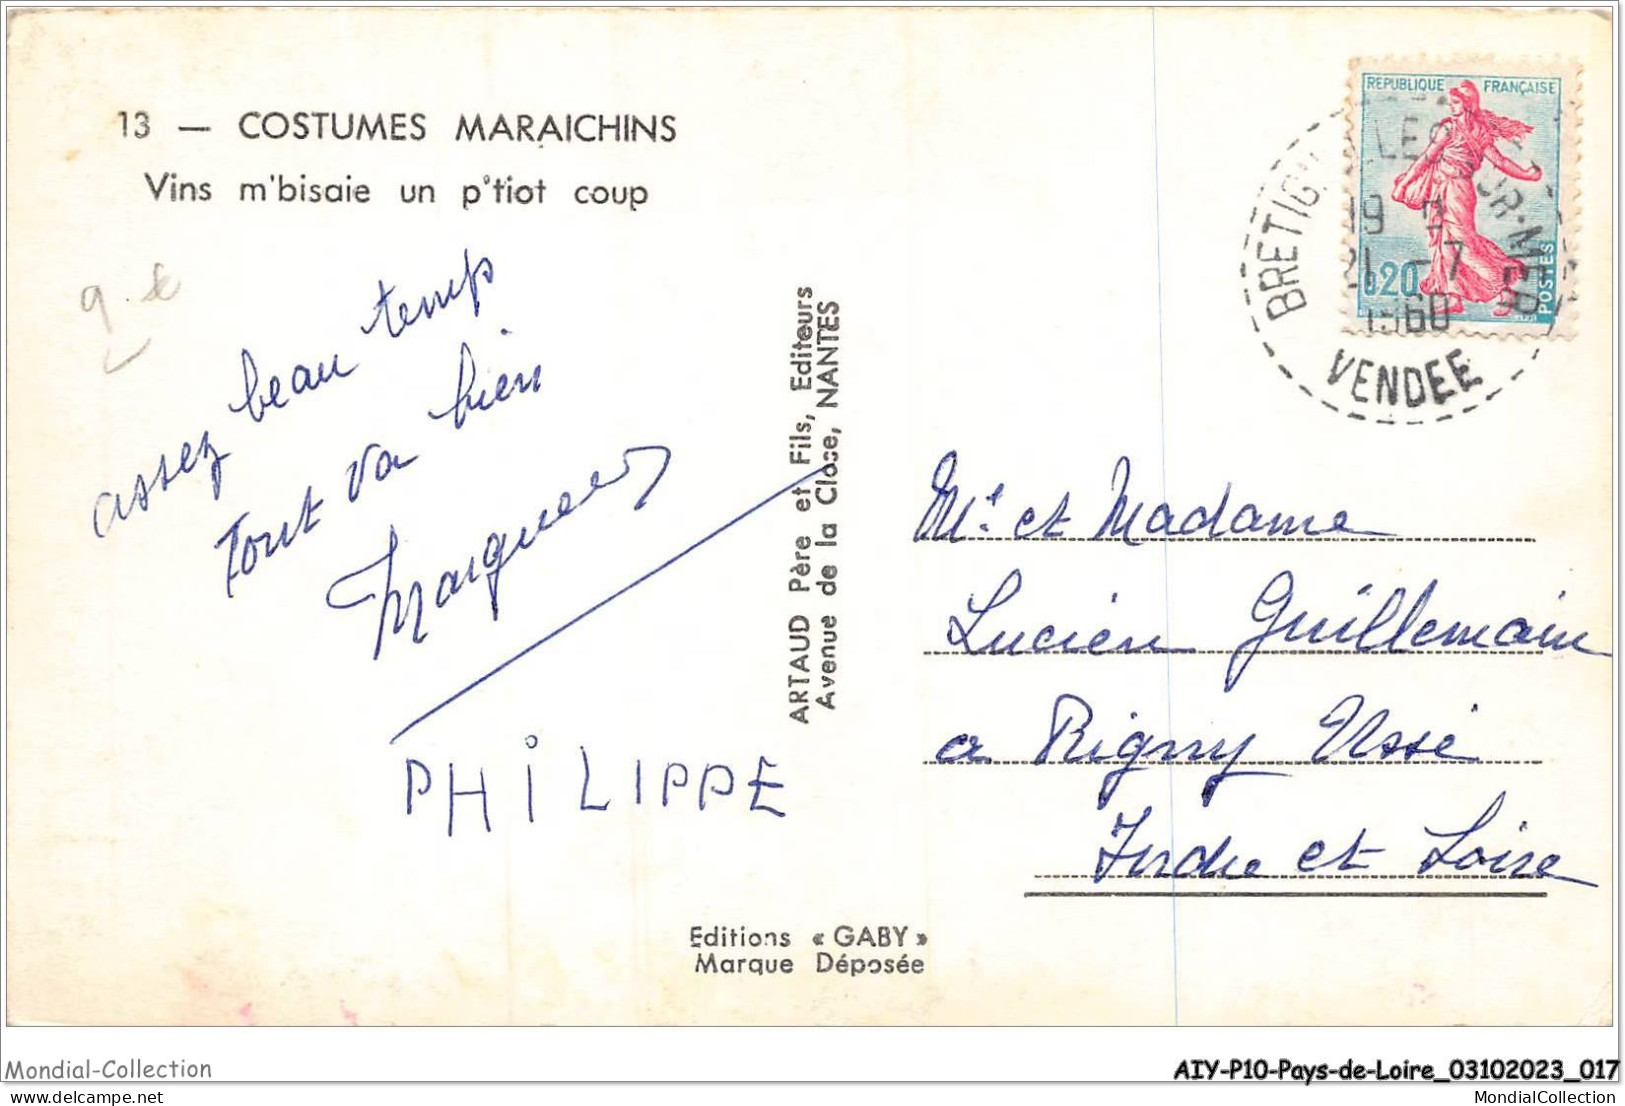 13 — COSTUMES MARAICHINS
Vins m'bisaie un p'tiot coup
assez beau temps
tout va bien
PHILIPPE
ARTAUD Père et Fils, Editeurs
Avenue de la Close, NANTES
REPUBLIQUE FRANÇAISE
0,20
POSTES
19 H
21 -7
1960
VENDEE
Mr. et Madame
Lucien Guillemain
a Rigny Ussé
Indre et Loire
Editions « GABY »
Marque Déposée
Mondial-Collection
AIY-P10-Pays-de-Loire_03102023_017
MondialCollection